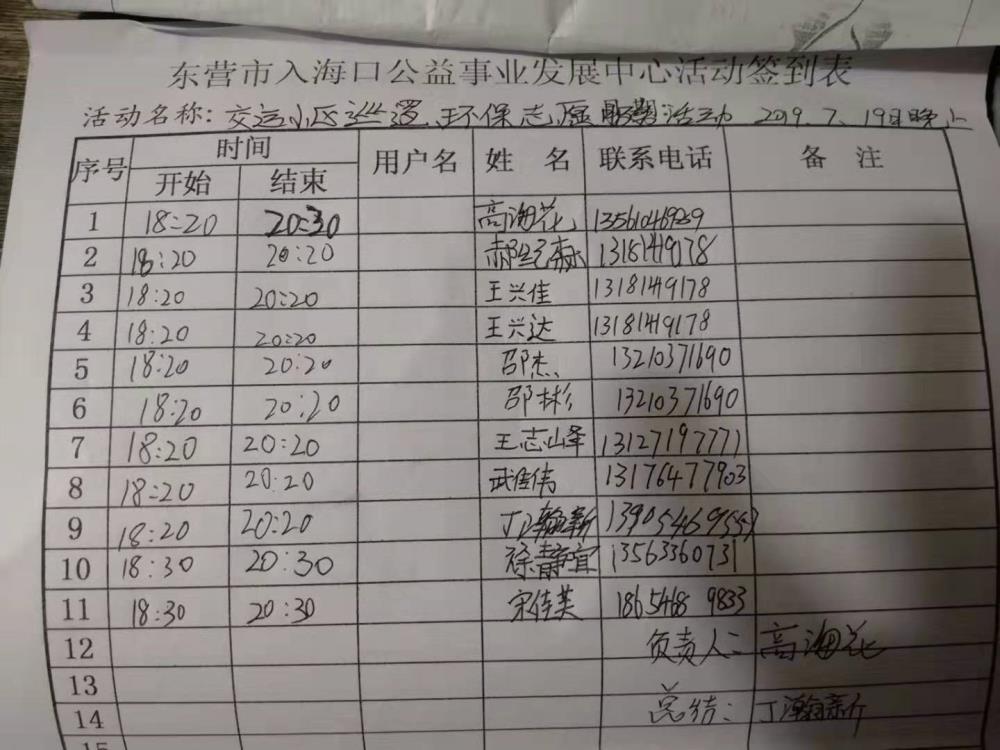 东营市入海口公益事业发展中心活动签到表
活动名称：交运小区巡逻、环保志愿服务活动 2019.7.19日晚上
序号 时间 用户名 姓 名 联系电话 备 注
开始 结束
1 18:20 20:30 高海花 13561046939
2 18:20 20:20 郝纪 13181419178
3 18:20 20:20 王兴佳 13181419178
4 18:20 20:20 王兴达 13181419178
5 18:20 20:20 邵杰 13210371690
6 18:20 20:20 邵彬 13210371690
7 18:20 20:20 王志山泽 13127197771
8 18:20 20:20 武佳伟 13176477903
9 18:20 20:20 丁瀚新
10 18:30 20:30 徐静宜 13563360731
11 18:30 20:30 宋佳美 1865468 9833
12 负责人：高海花
13
14 总结：丁瀚新
15